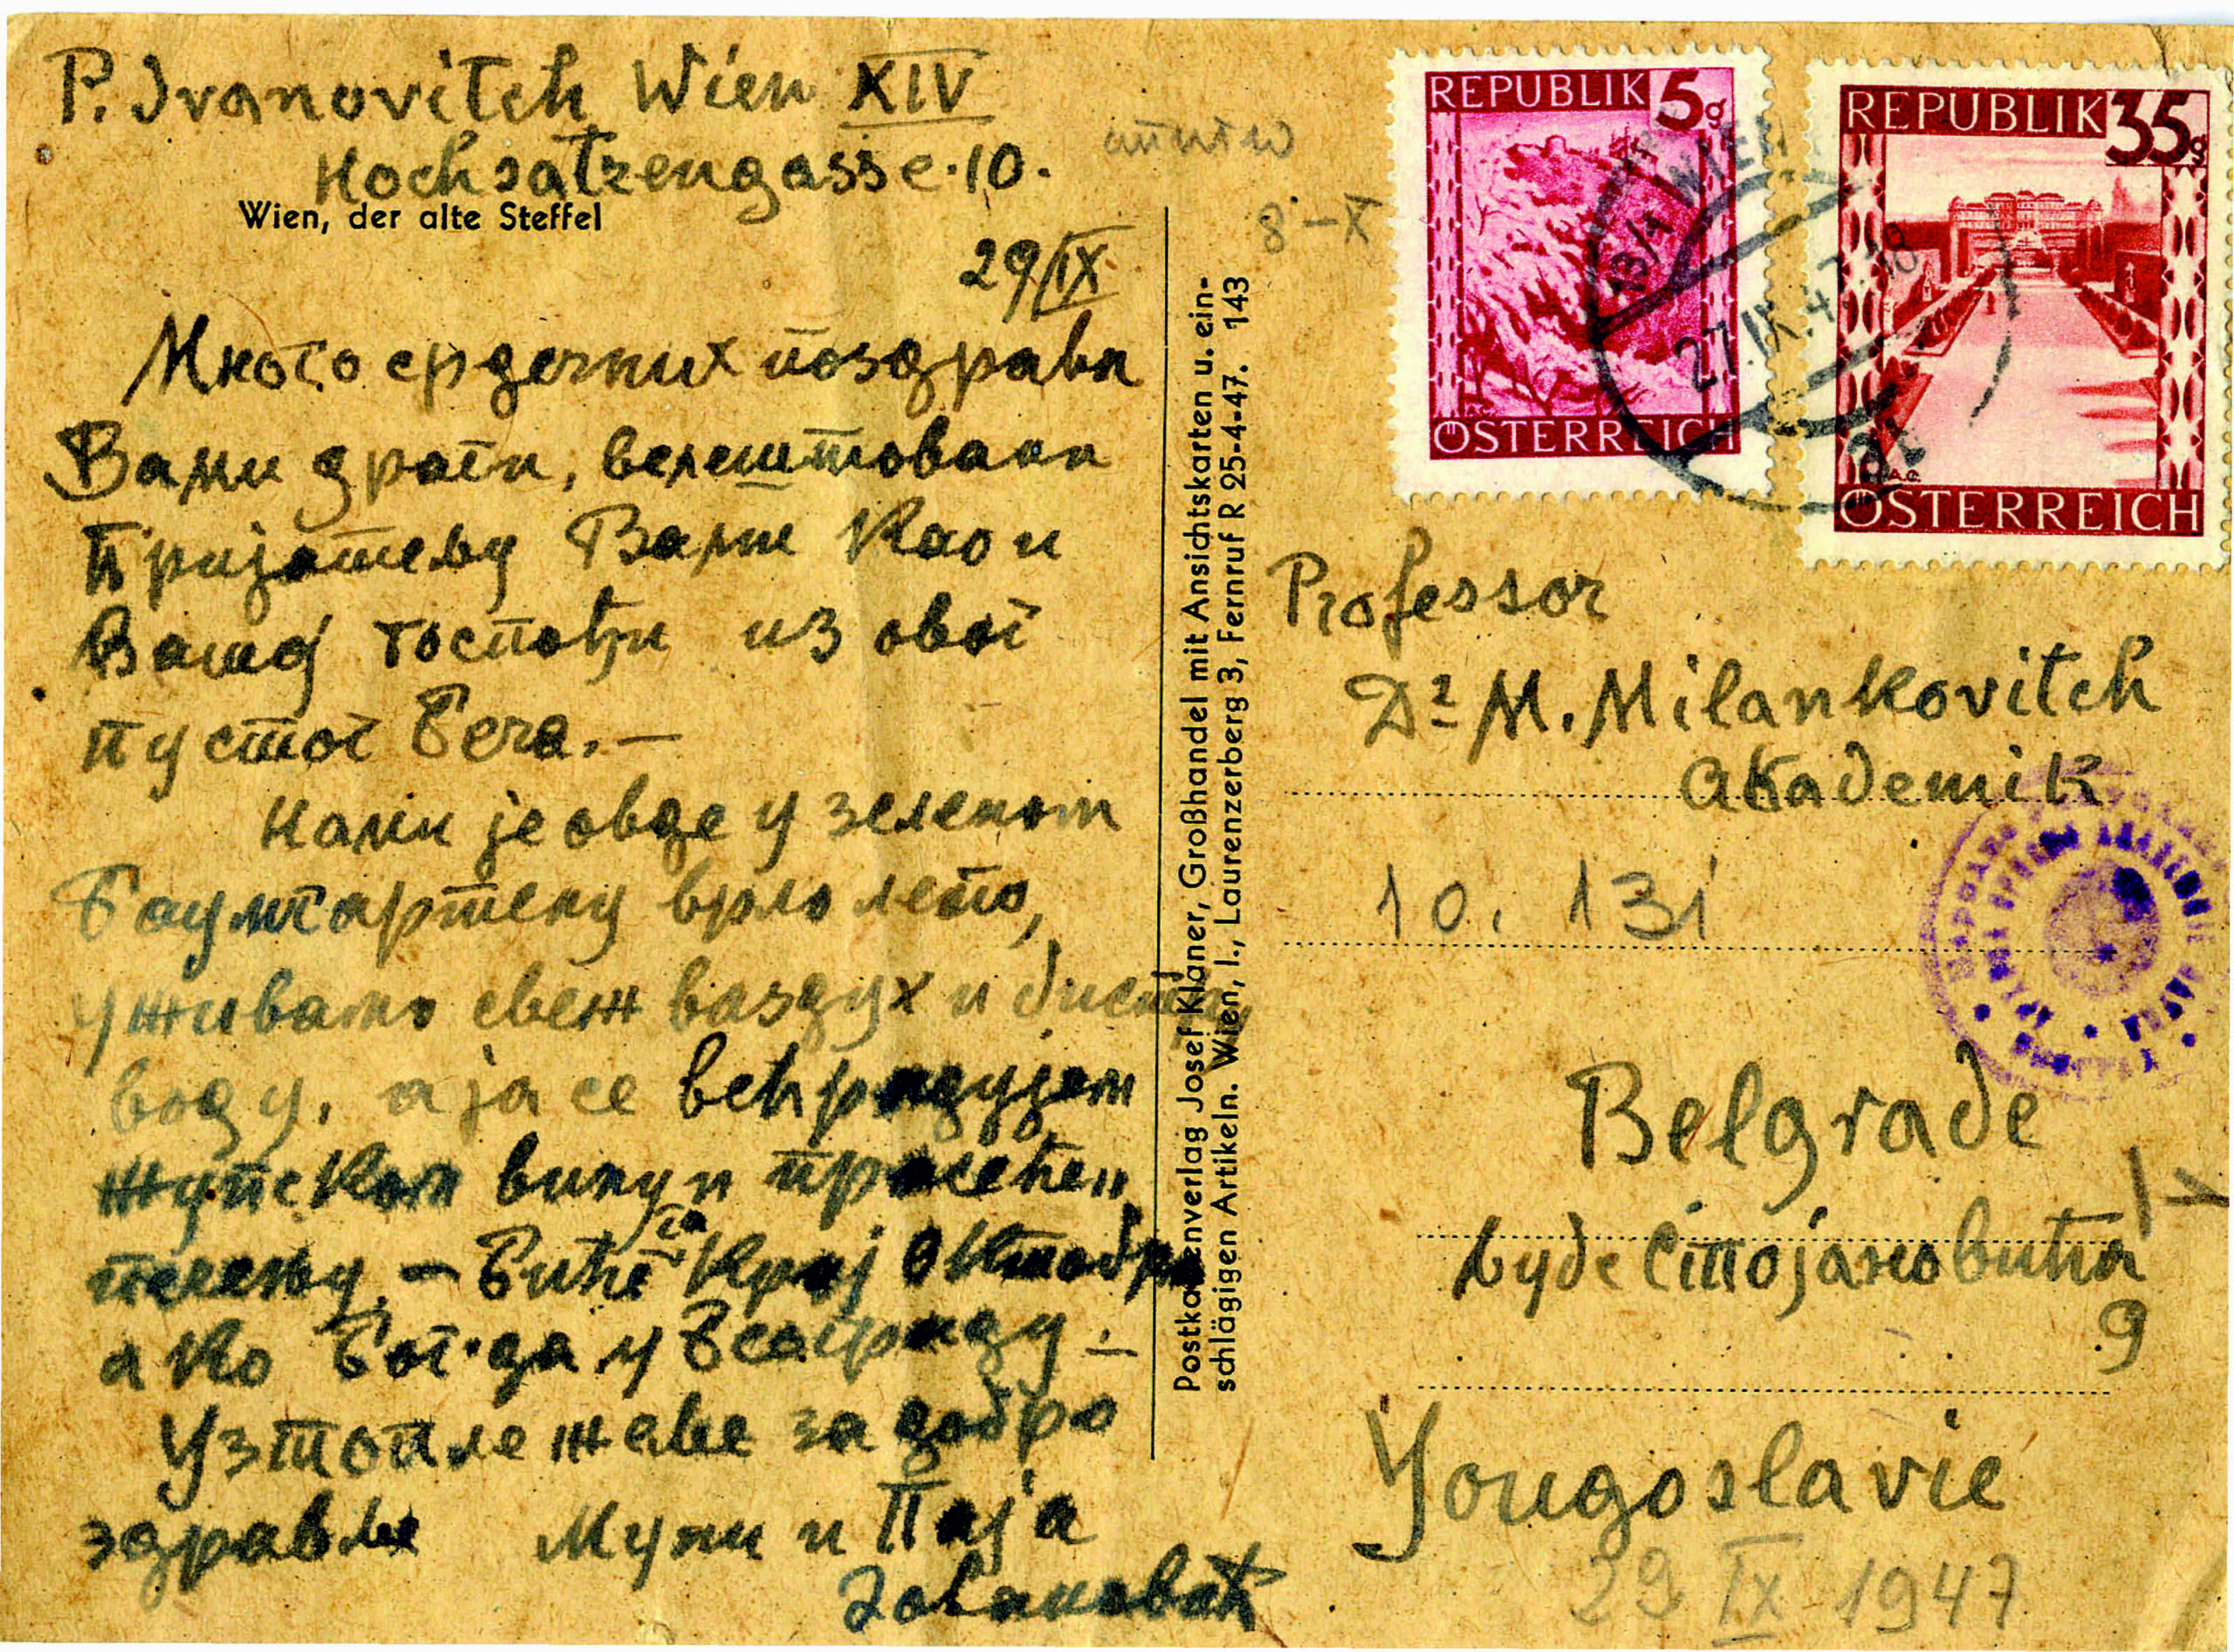 P. Ivanovitch Wien XIV
Hochsatzengasse 10.
Wien, der alte Steffel
29/IX.
Много срдечних поздрава
Вами драги, велештовани
Пријатељу Вами као и
Вашој госпођи из овог
пустог Беча. —
Нами је овде у зеленом
Баумгартену врло лепо,
уживамо свеж ваздух и бистру
воду, а ја се већ радујем
жупском вину и прасећем
печењу. — Бићу за крај Октобра
ако Бог да у Београду —
Уз топле жеље за добро
здравље Муни и Паја
Јовановић
8 - X
REPUBLIK 5g
ÖSTERREICH
REPUBLIK 35g
ÖSTERREICH
WIEN
27.IX.47.18
Postkartenverlag Josef Klaner, Großhandel mit Ansichtskarten u. ein-
schlägigen Artikeln. Wien, I., Laurenzerberg 3, Fernruf R 25-4-47. 143
Professor
Dr M. Milankovitch
Akademik
10. 131
Belgrade
Љубе Стојановића
9
Yougoslavie
29 IX 1947